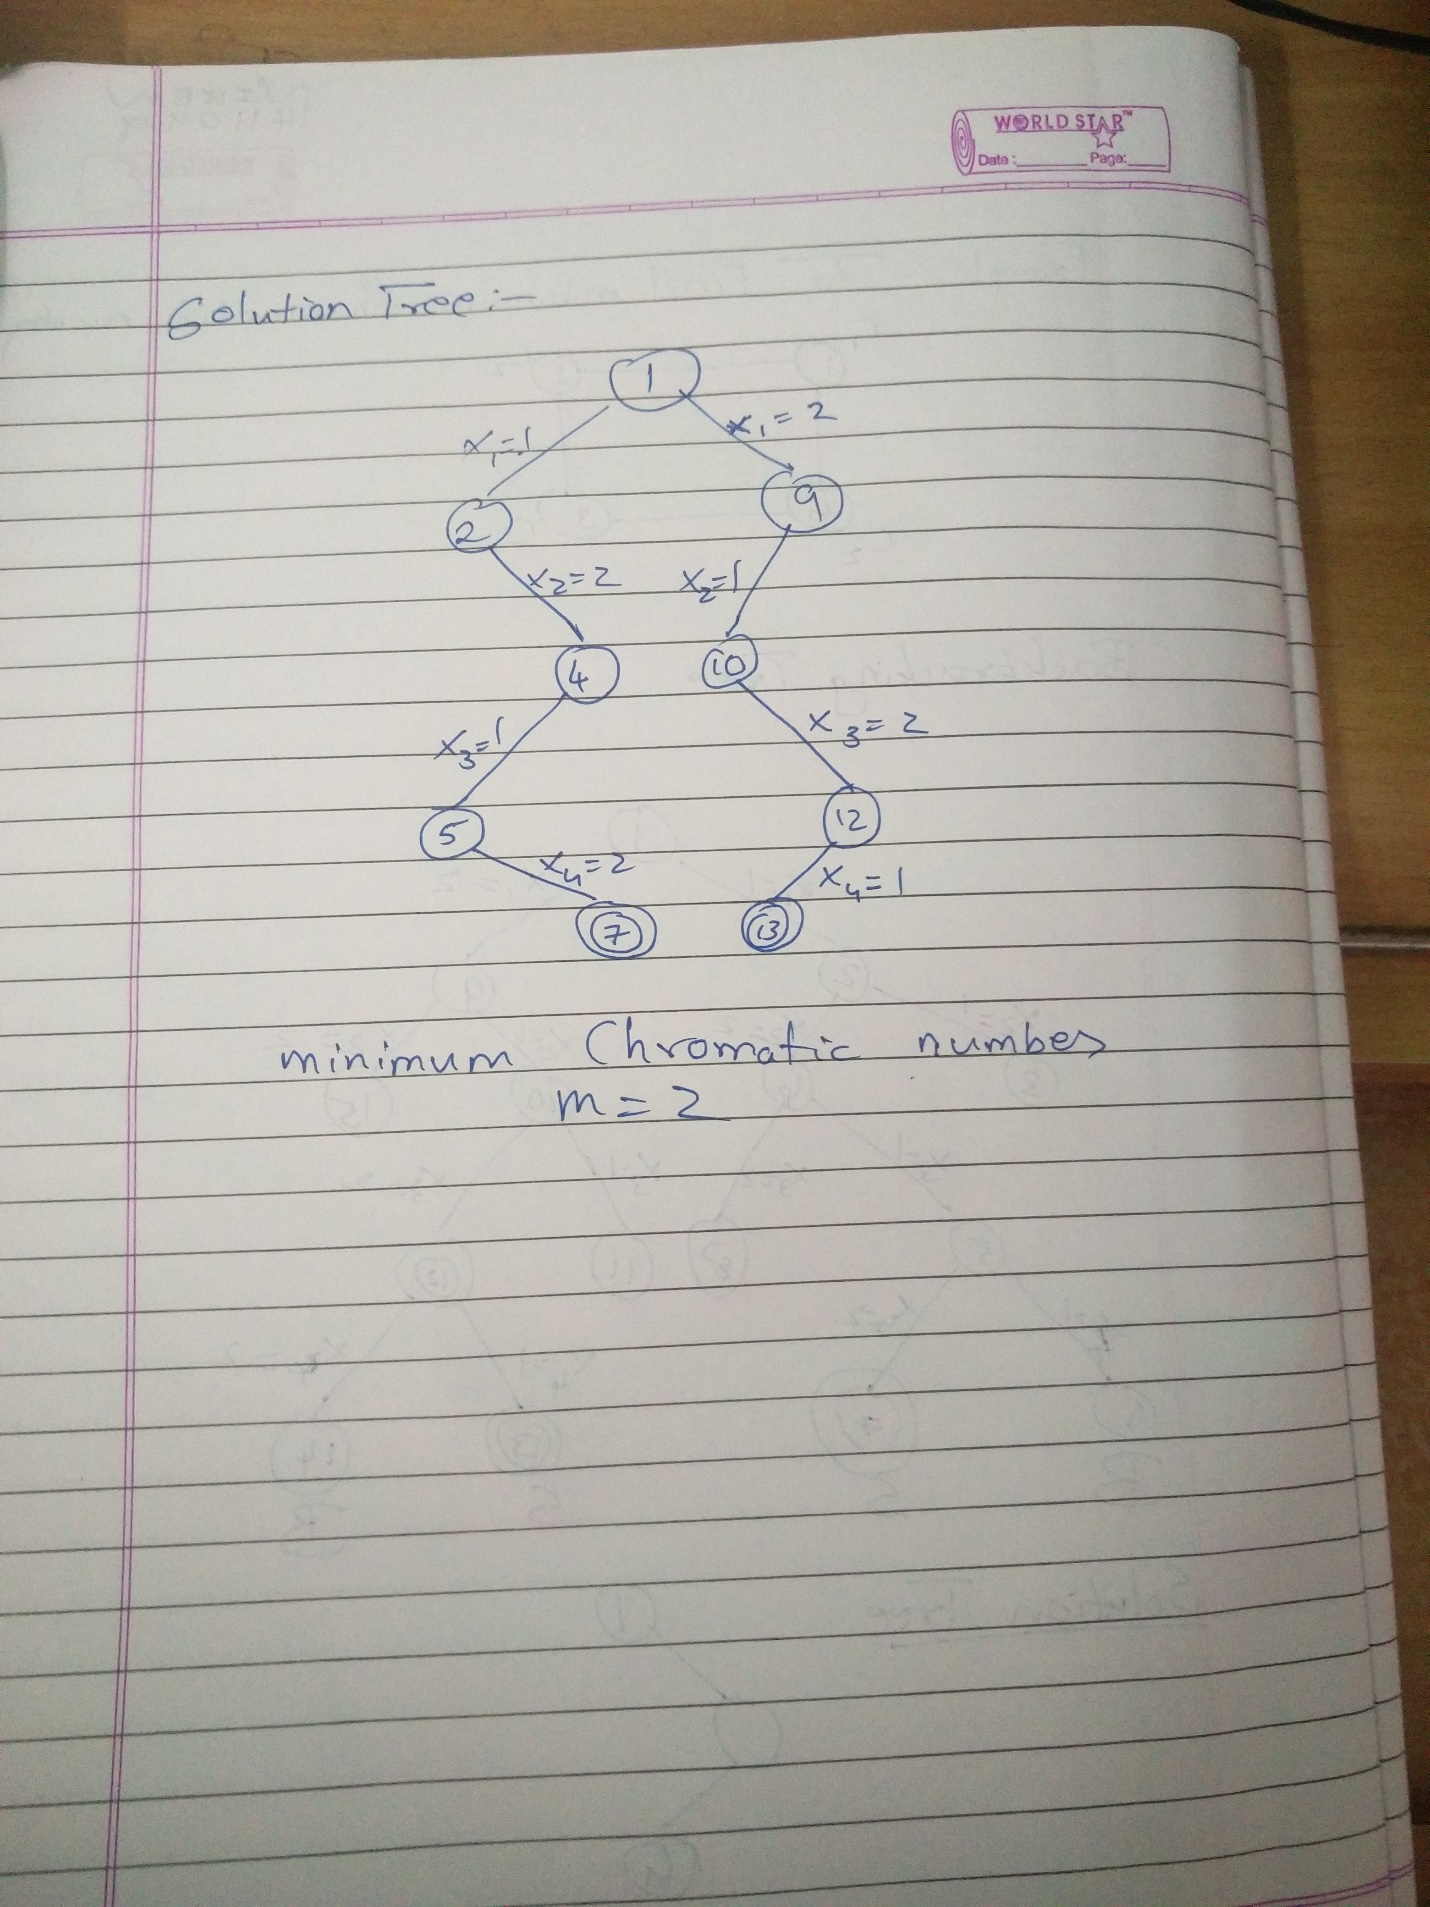 WORLD STAR™
Date: Page:
Solution Tree :-
1
x₁=1 x₁=2
2 9
x₂=2 x₂=1
4 10
x₃=1 x₃=2
5 12
x₄=2 x₄=1
7 13
minimum Chromatic number
m=2